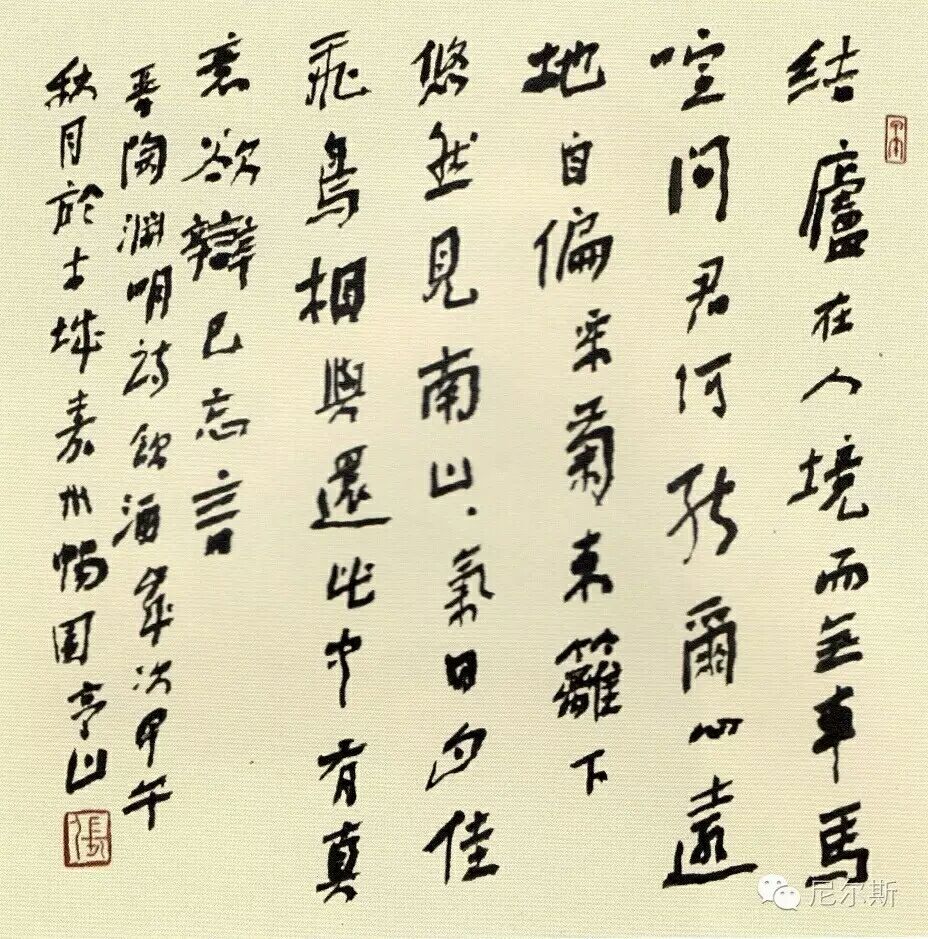 結廬在人境而無車馬
喧問君何能爾心遠
地自偏采菊東籬下
悠然見南山、氣日夕佳
飛鳥相與還此中有真
意欲辯已忘言
晉陶淵明詩飲酒歲次甲午
秋月於古城嘉州暢園亭山
張
尼尔斯